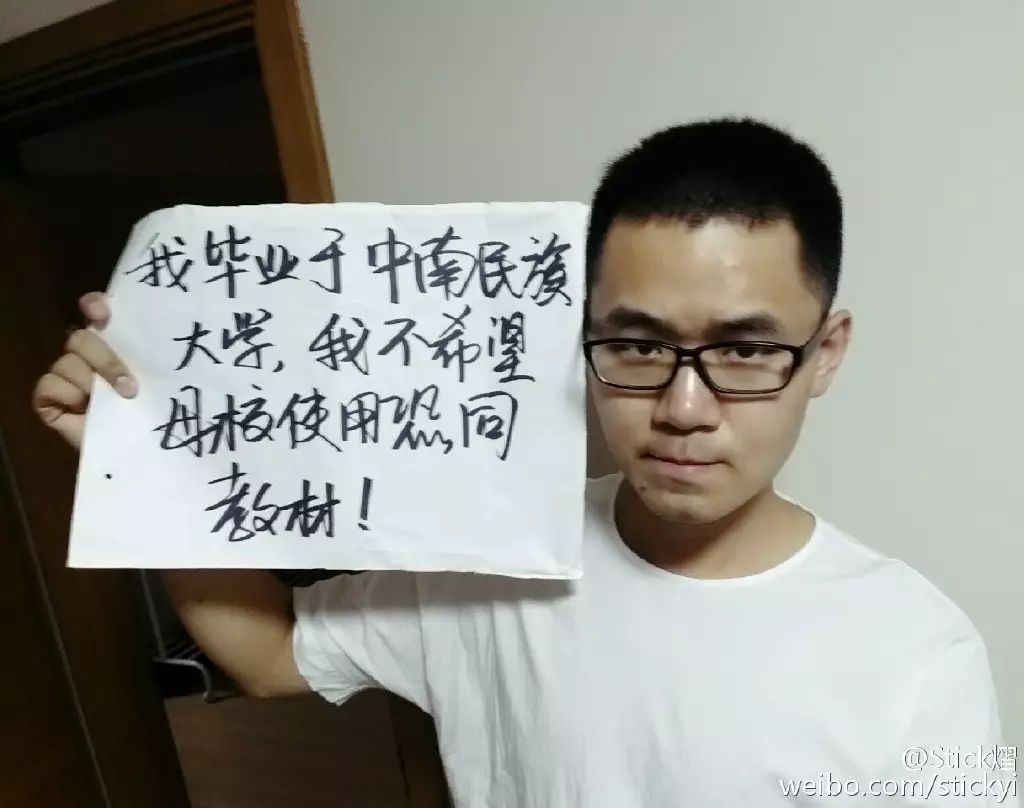 我毕业于中南民族
大学,我不希望
母校使用恐同
教材!
@Stick熠
weibo.com/stickyi